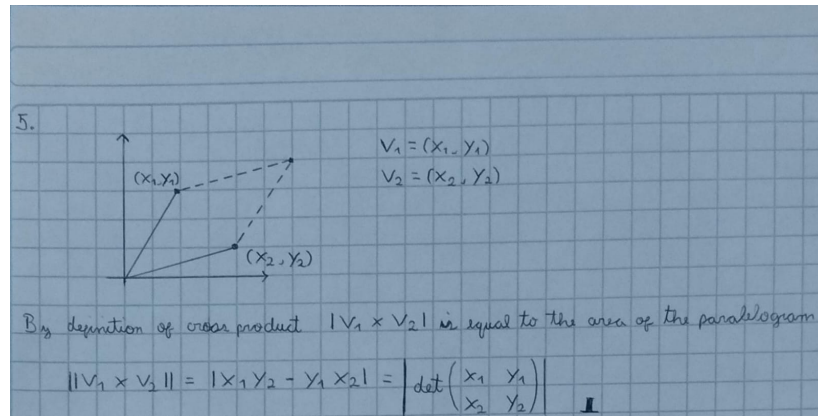 5.
V₁ = (X₁, Y₁)
(X₁, Y₁)
V₂ = (X₂, Y₂)
(X₂, Y₂)
By definition of cross product |V₁ × V₂| is equal to the area of the paralelogram
||V₁ × V₂|| = |X₁Y₂ - Y₁X₂| = |det(X₁ Y₁
X₂ Y₂)|